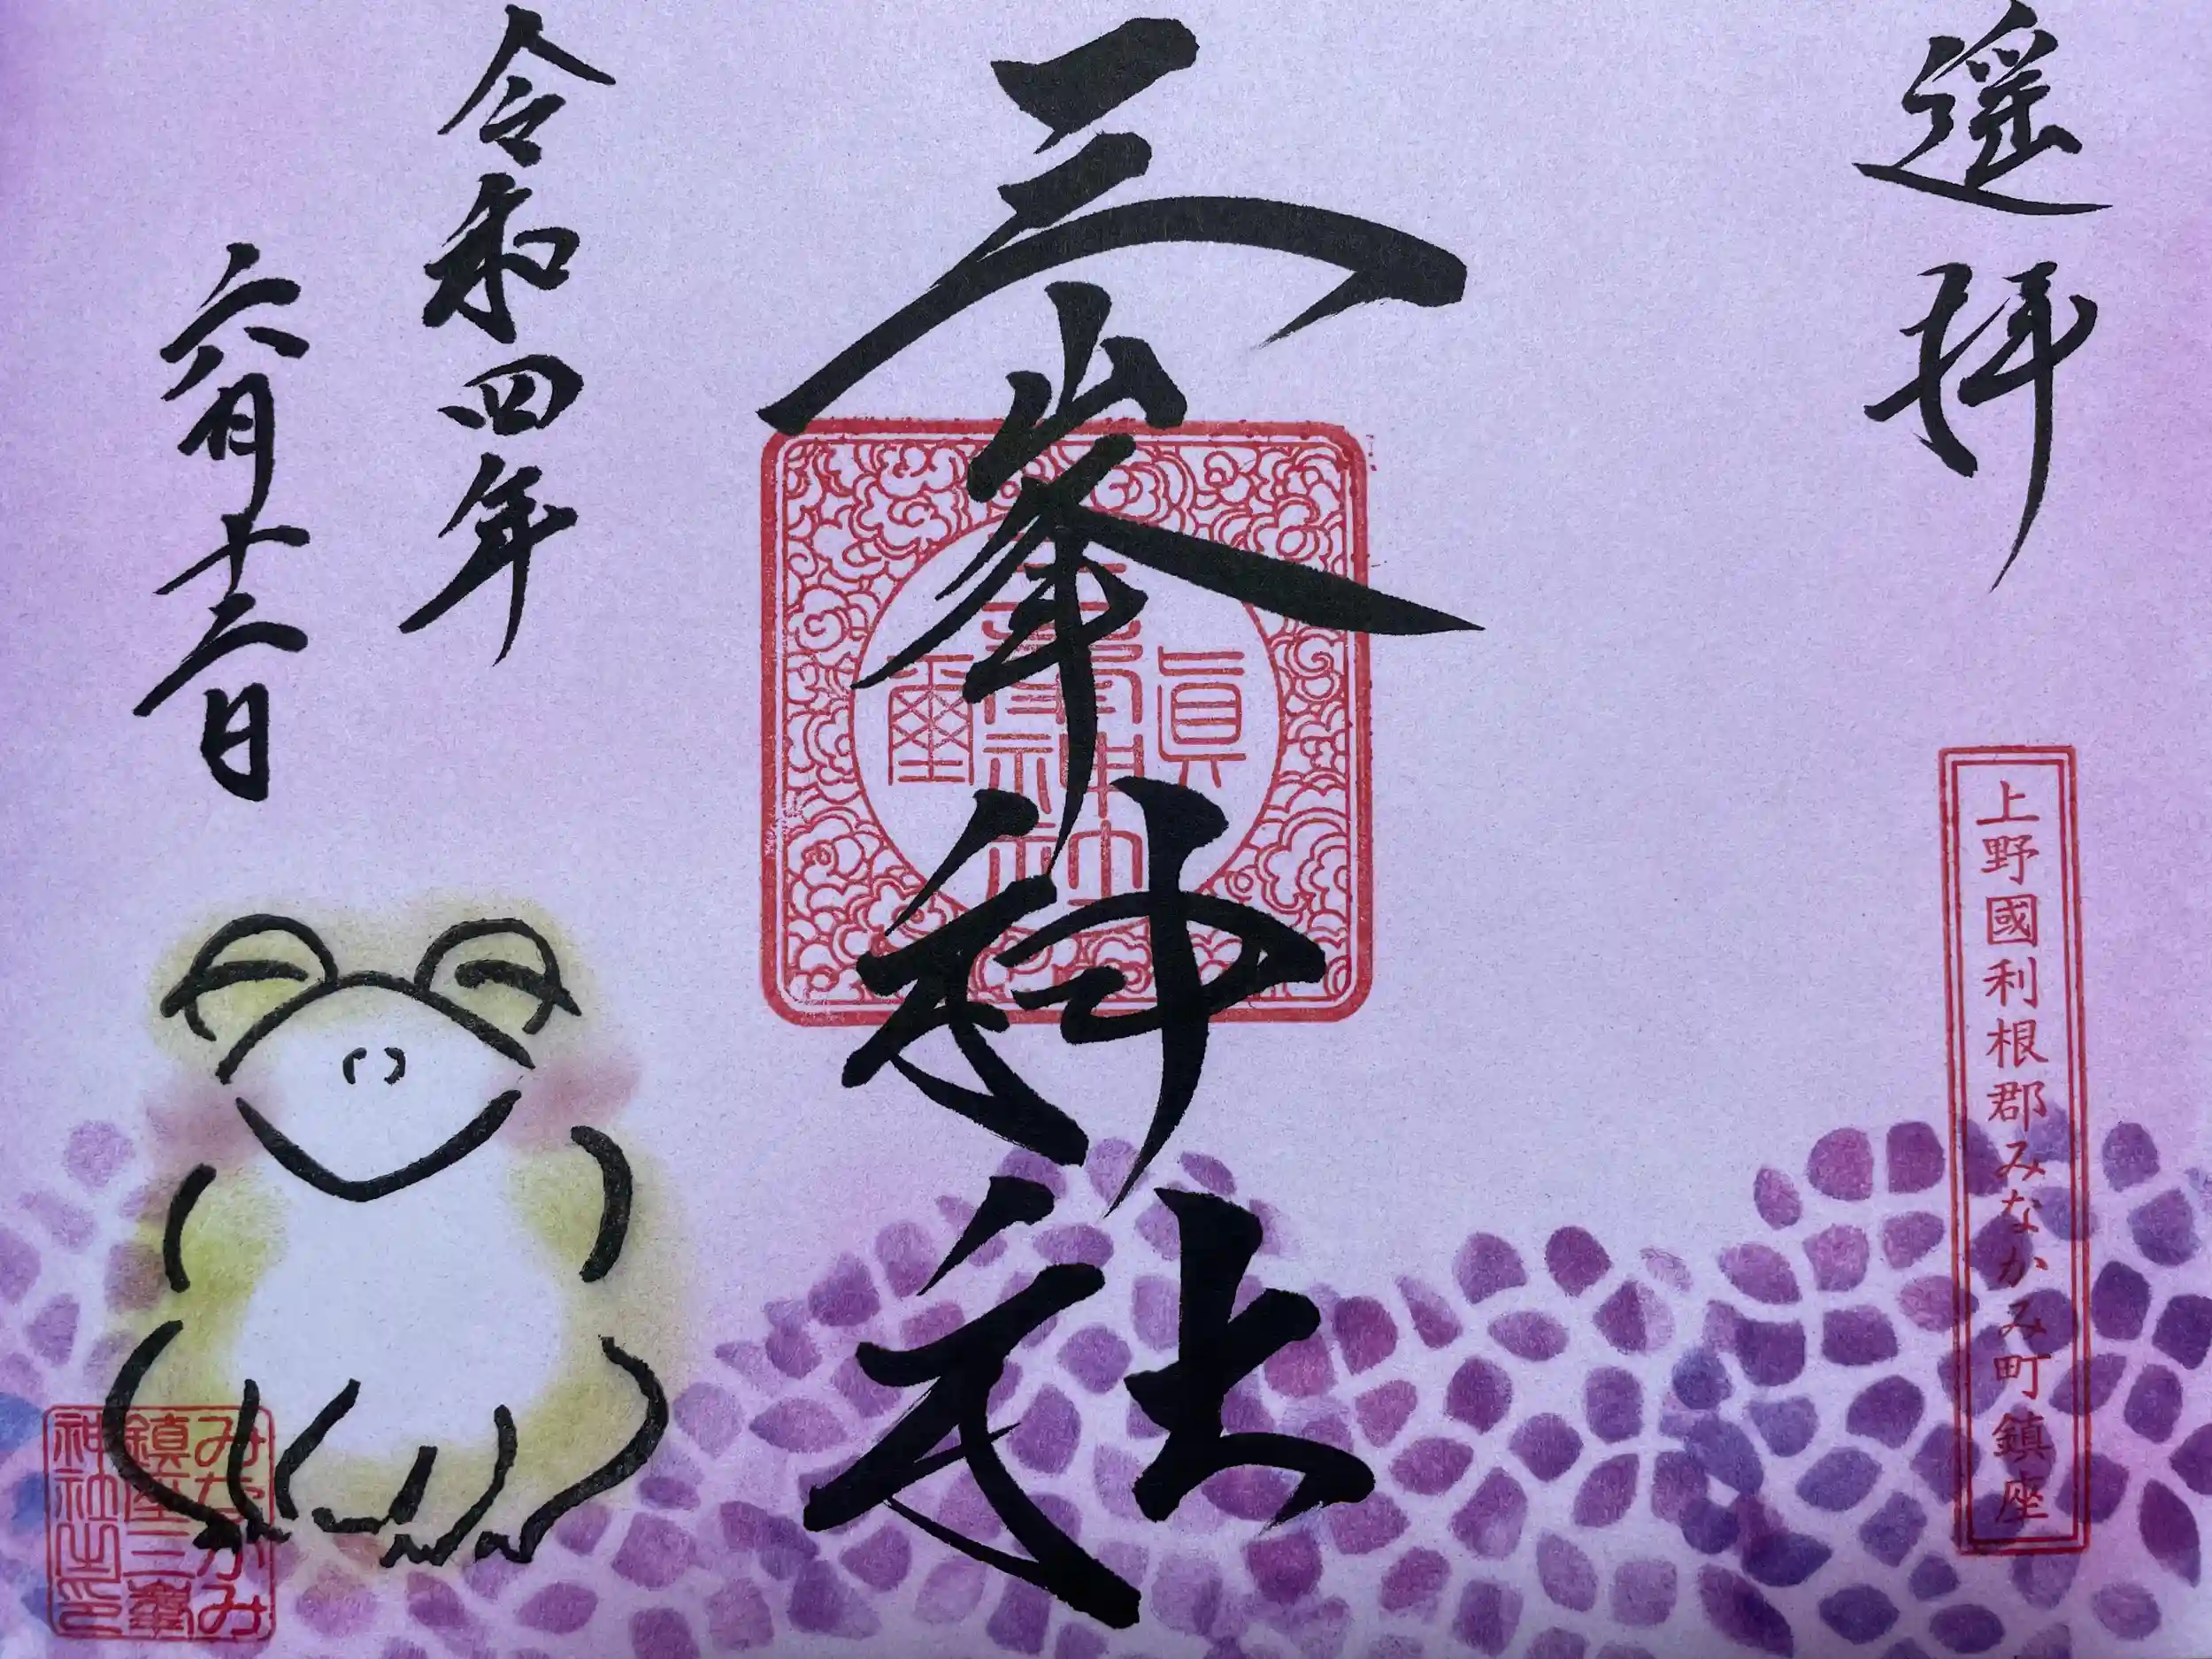 遥拝
上野國利根郡みなかみ町鎮座
三峯神社
眞
三峯神社
璽
令和四年
六月十二日
みなかみ
鎮座三峯
神社之印